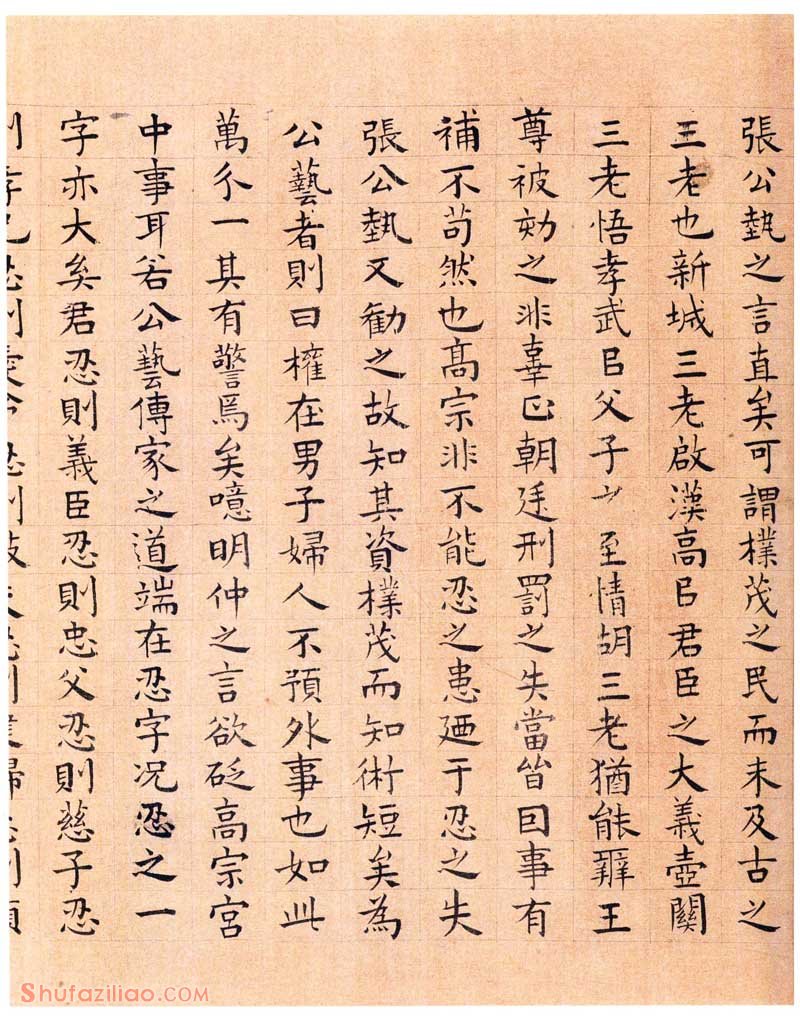 張公埶之言直矣可謂樸茂之民而未及古之
三老也新城三老啟漢高㠯君臣之大義壺關
三老悟孝武㠯父子之至情胡三老猶能辭王
尊被劾之非辜正朝廷刑罰之失當皆因事有
補不苟然也高宗非不能忍之患廼于忍之失
張公埶又勸之故知其資樸茂而知術短矣為
公藝者則曰權在男子婦人不預外事也如此
萬分一其有警焉矣噫明仲之言欲砭高宗宮
中事耳若公藝傳家之道端在忍字况忍之一
字亦大矣君忍則義臣忍則忠父忍則慈子忍
Shufaziliao.COM